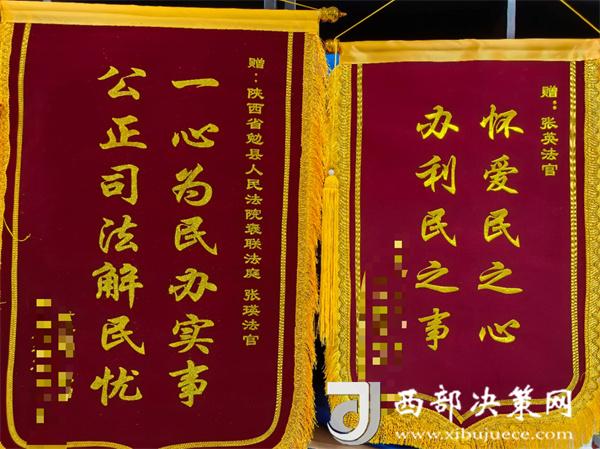 赠：陕西省勉县人民法院褒联法庭 张瑛法官
一心为民办实事
公正司法解民忧
赠：张英法官
怀爱民之心
办利民之事
西部决策网
www.xibujuece.com